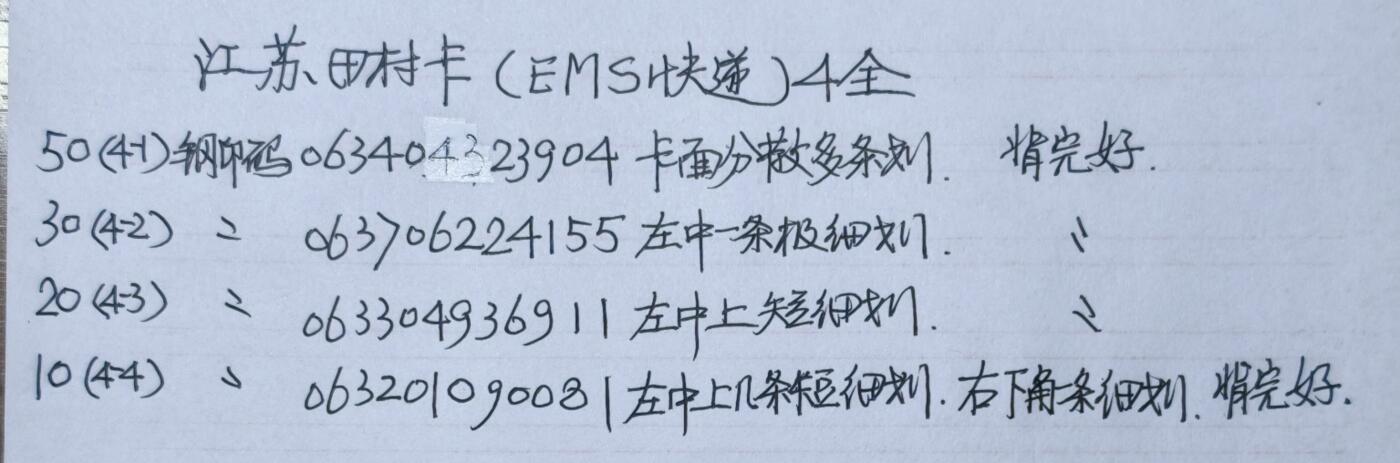 江苏田村卡(EMS快递)4全
50(4-1)钢印码063404323904卡面分散多条划. 背完好.
30(4-2) 〃 063706224155左中一条极细划. 〃
20(4-3) 〃 063304936911左中上短细划. 〃
10(4-4) 〃 063201090081左中上几条短细划.右下角条细划.背完好.